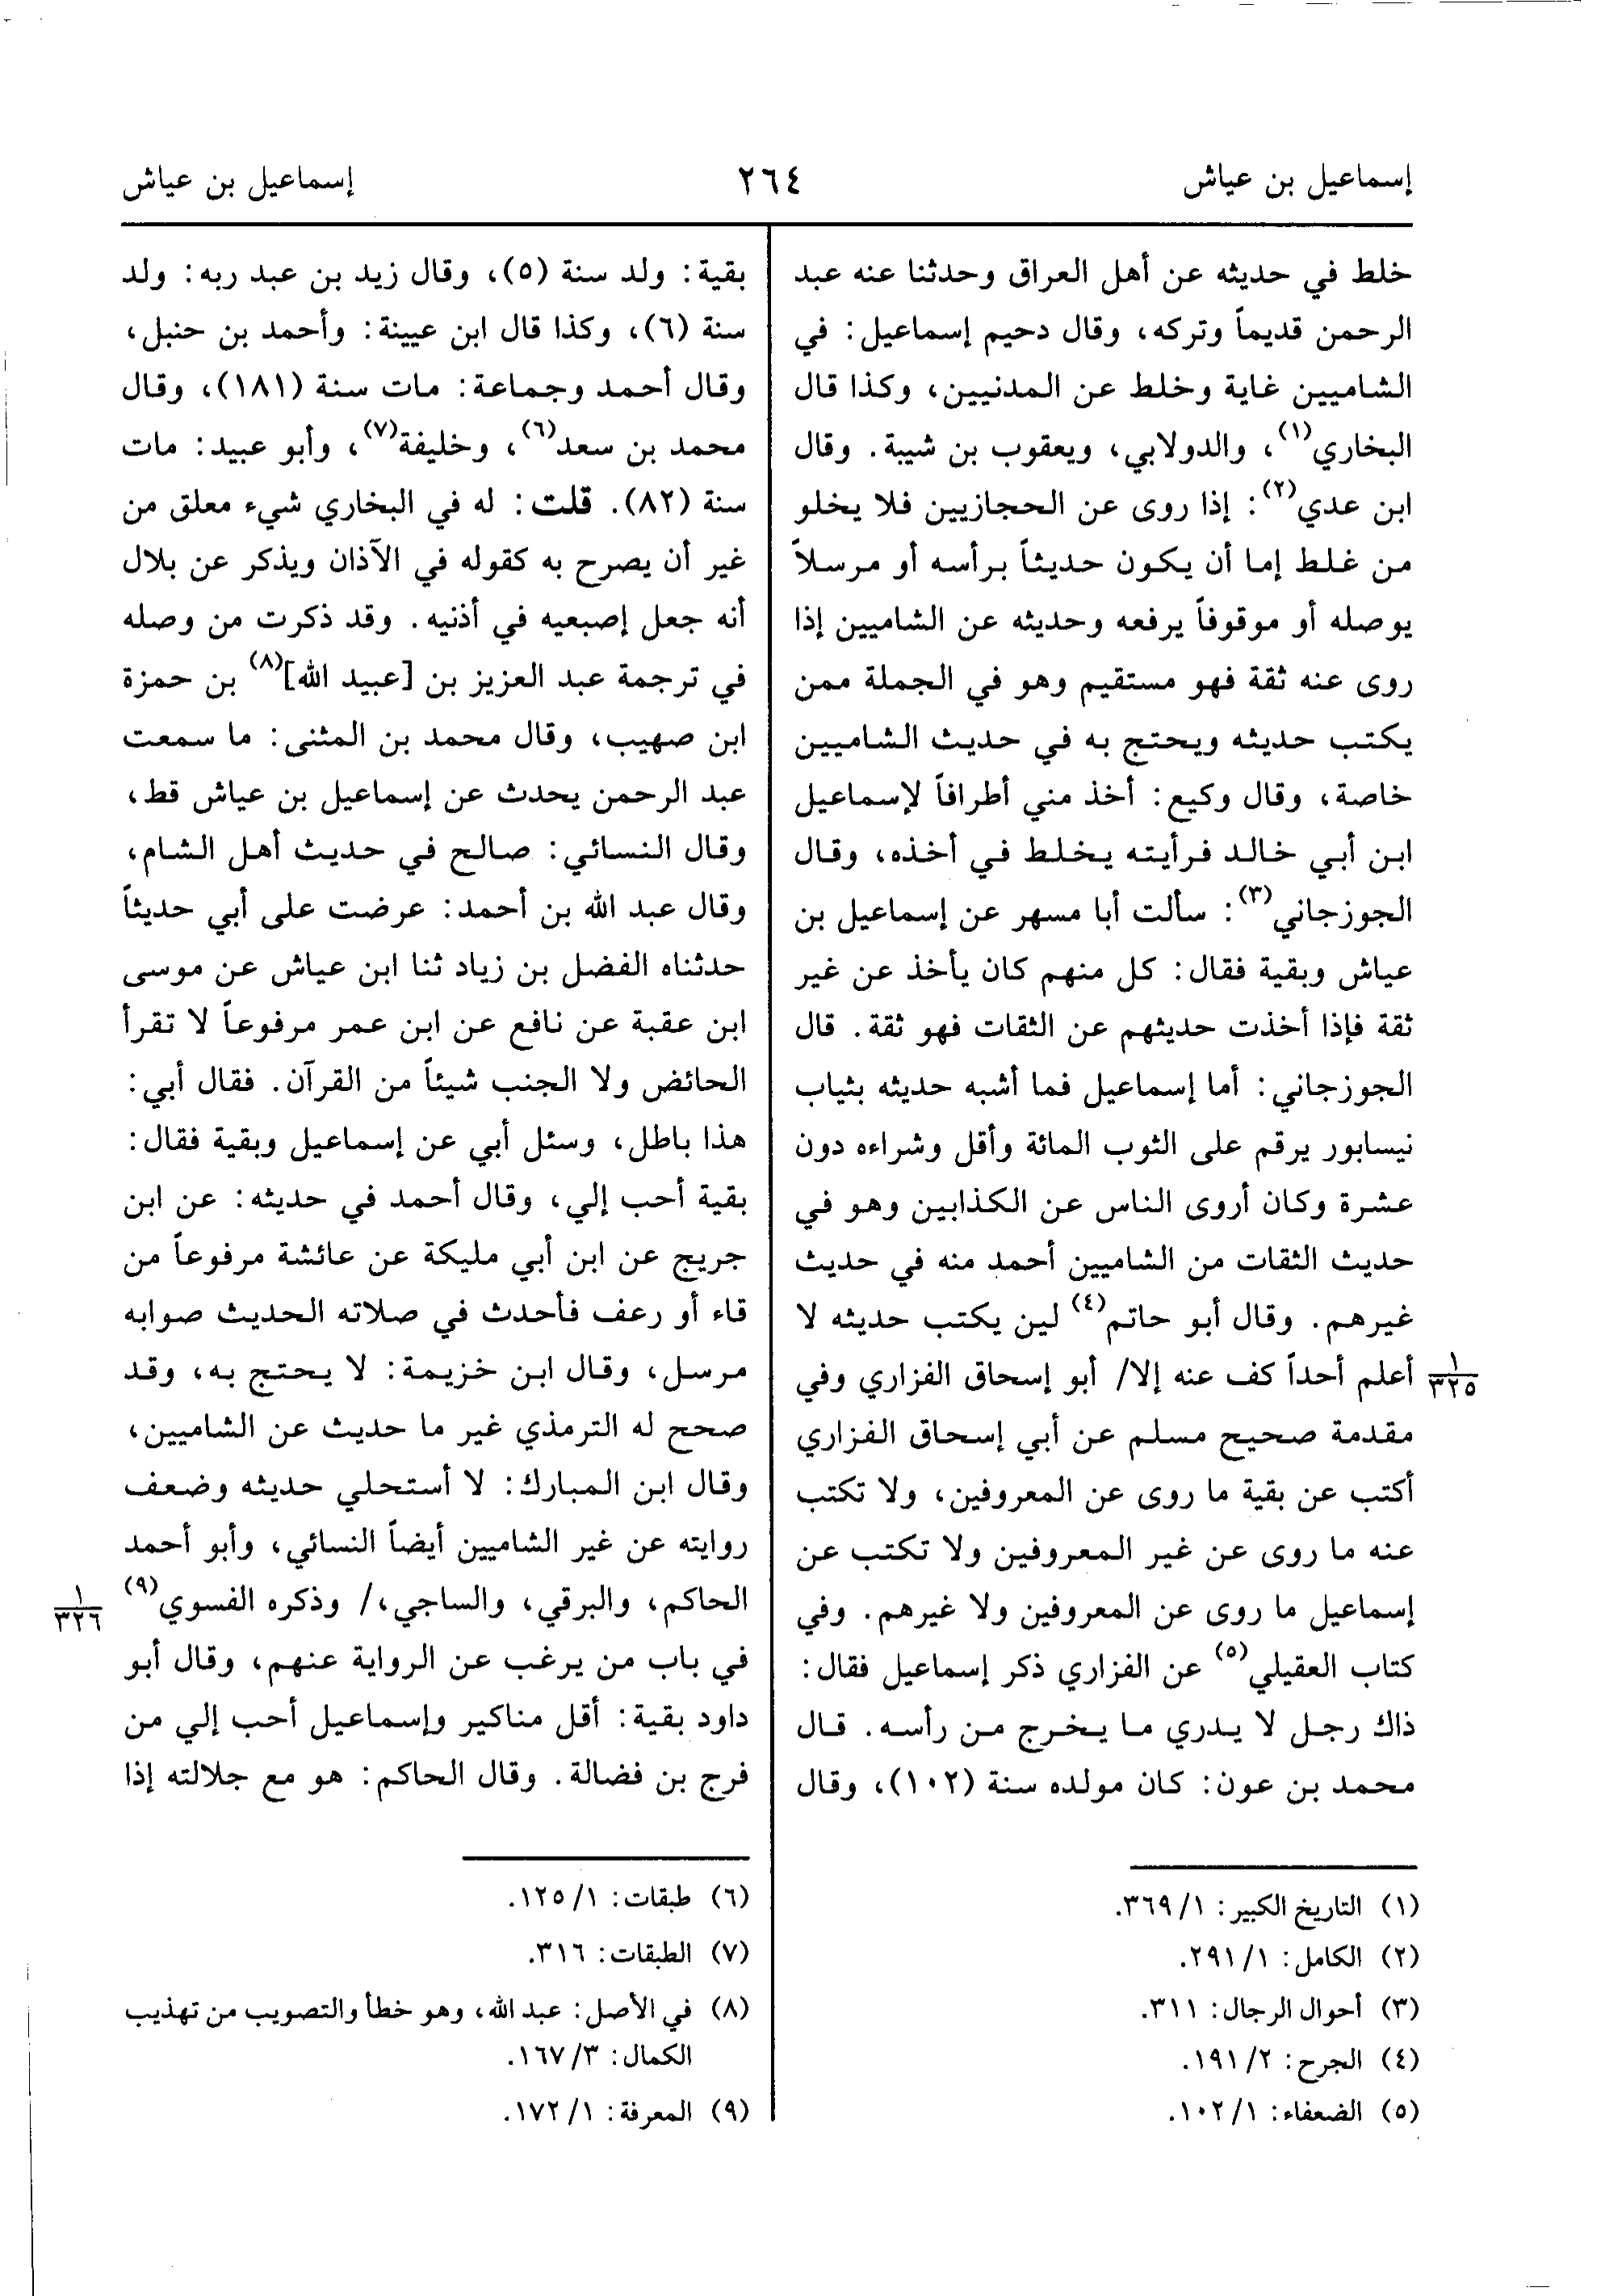 إسماعيل بن عياش ٢٦٤ إسماعيل بن عياش
خلط في حديثه عن أهل العراق وحدثنا عنه عبد
الرحمن قديماً وتركه، وقال دحيم إسماعيل: في
الشاميين غاية وخلط عن المدنيين، وكذا قال
البخاري(١)، والدولابي، ويعقوب بن شيبة. وقال
ابن عدي(٢): إذا روى عن الحجازيين فلا يخلو
من غلط إما أن يكون حديثاً برأسه أو مرسلاً
يوصله أو موقوفاً يرفعه وحديثه عن الشاميين إذا
روى عنه ثقة فهو مستقيم وهو في الجملة ممن
يكتب حديثه ويحتج به في حديث الشاميين
خاصة، وقال وكيع: أخذ مني أطرافاً لإسماعيل
ابن أبي خالد فرأيته يخلط في أخذه، وقال
الجوزجاني(٣): سألت أبا مسهر عن إسماعيل بن
عياش وبقية فقال: كل منهم كان يأخذ عن غير
ثقة فإذا أخذت حديثهم عن الثقات فهو ثقة. قال
الجوزجاني: أما إسماعيل فما أشبه حديثه بثياب
نيسابور يرقم على الثوب المائة وأقل وشراءه دون
عشرة وكان أروى الناس عن الكذابين وهو في
حديث الثقات من الشاميين أحمد منه في حديث
غيرهم. وقال أبو حاتم(٤) لين يكتب حديثه لا
أعلم أحداً كف عنه إلا/ أبو إسحاق الفزاري وفي
١
٣٢٥
مقدمة صحيح مسلم عن أبي إسحاق الفزاري
أكتب عن بقية ما روى عن المعروفين، ولا تكتب
عنه ما روى عن غير المعروفين ولا تكتب عن
إسماعيل ما روى عن المعروفين ولا غيرهم. وفي
كتاب العقيلي(٥) عن الفزاري ذكر إسماعيل فقال:
ذاك رجل لا يدري ما يخرج من رأسه. قال
محمد بن عون: كان مولده سنة (١٠٢)، وقال
(١) التاريخ الكبير: ٣٦٩/١.
(٢) الكامل: ٢٩١/١.
(٣) أحوال الرجال: ٣١١.
(٤) الجرح: ١٩١/٢.
(٥) الضعفاء: ١٠٢/١.
بقية: ولد سنة (٥)، وقال زيد بن عبد ربه: ولد
سنة (٦)، وكذا قال ابن عيينة: وأحمد بن حنبل،
وقال أحمد وجماعة: مات سنة (١٨١)، وقال
محمد بن سعد(٦)، وخليفة(٧)، وأبو عبيد: مات
سنة (٨٢). قلت: له في البخاري شيء معلق من
غير أن يصرح به كقوله في الآذان ويذكر عن بلال
أنه جعل إصبعيه في أذنيه. وقد ذكرت من وصله
في ترجمة عبد العزيز بن [عبيد الله](٨) بن حمزة
ابن صهيب، وقال محمد بن المثنى: ما سمعت
عبد الرحمن يحدث عن إسماعيل بن عياش قط،
وقال النسائي: صالح في حديث أهل الشام،
وقال عبد الله بن أحمد: عرضت على أبي حديثاً
حدثناه الفضل بن زياد ثنا ابن عياش عن موسى
ابن عقبة عن نافع عن ابن عمر مرفوعاً لا تقرأ
الحائض ولا الجنب شيئاً من القرآن. فقال أبي:
هذا باطل، وسئل أبي عن إسماعيل وبقية فقال:
بقية أحب إلي، وقال أحمد في حديثه: عن ابن
جريج عن ابن أبي مليكة عن عائشة مرفوعاً من
قاء أو رعف فأحدث في صلاته الحديث صوابه
مرسل، وقال ابن خزيمة: لا يحتج به، وقد
صحح له الترمذي غير ما حديث عن الشاميين،
وقال ابن المبارك: لا أستحلي حديثه وضعف
روايته عن غير الشاميين أيضاً النسائي، وأبو أحمد
الحاكم، والبرقي، والساجي،/ وذكره الفسوي(٩)
١
٣٢٦
في باب من يرغب عن الرواية عنهم، وقال أبو
داود بقية: أقل مناكير وإسماعيل أحب إلي من
فرج بن فضالة. وقال الحاكم: هو مع جلالته إذا
(٦) طبقات: ١٢٥/١.
(٧) الطبقات: ٣١٦.
(٨) في الأصل: عبد الله، وهو خطأ والتصويب من تهذيب
الكمال: ١٦٧/٣.
(٩) المعرفة: ١٧٢/١.